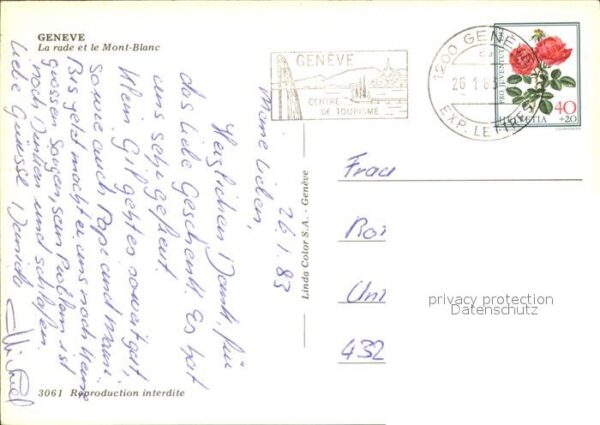 GENEVE
La rade et le Mont-Blanc
26.1.83
Meine Lieben,
Herzlichen Dank für
das liebe Geschenk! Es hat
uns sehr gefreut.
Klein Gil geht es soweit gut,
sowie auch Papi und Mami.
Bis jetzt macht er uns noch keine
grossen Sorgen, sein Problem ist
noch Trinken und schlafen.
Liebe Grüsse
3061 Reproduction interdite
Linda Color S.A. - Genève
GENÈVE
CENTRE
DE TOURISME
1200 GENÈVE
26.1.8
EXP. LETTRES
PRO JUVENTUTE
40
+20
HELVETIA
Frau
Ros
Uni
432
privacy protection
Datenschutz